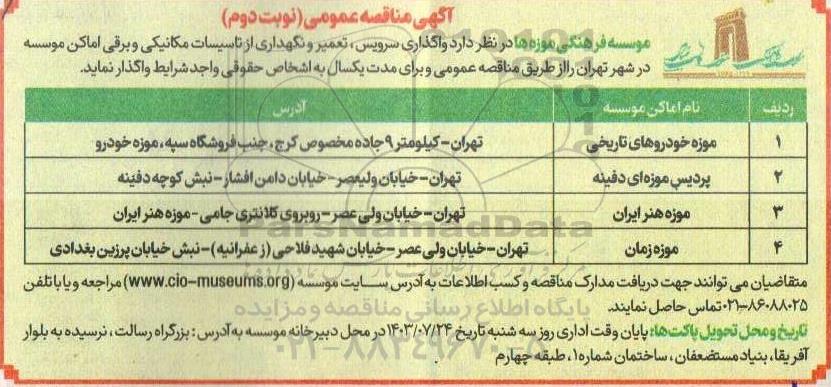 آگهی مناقصه عمومی (نوبت دوم)
موسسه فرهنگی موزه‌ها در نظر دارد واگذاری سرویس، تعمیر و نگهداری از تاسیسات مکانیکی و برقی اماکن موسسه
در شهر تهران را از طریق مناقصه عمومی و برای مدت یکسال به اشخاص حقوقی واجد شرایط واگذار نماید.
ردیف نام اماکن موسسه آدرس
۱ موزه خودروهای تاریخی تهران – کیلومتر ۹ جاده مخصوص کرج، جنب فروشگاه سپه، موزه خودرو
۲ پردیس موزه‌ای دفینه تهران – خیابان ولیعصر – خیابان دامن افشار – نبش کوچه دفینه
۳ موزه هنر ایران تهران – خیابان ولی عصر – روبروی کلانتری جامی – موزه هنر ایران
۴ موزه زمان تهران – خیابان ولی عصر – خیابان شهید فلاحی (زعفرانیه) – نبش خیابان پرزین بغدادی
متقاضیان می توانند جهت دریافت مدارک مناقصه و کسب اطلاعات به آدرس سایت موسسه (www.cio-museums.org) مراجعه و یا با تلفن
۸۶۰۸۸۰۲۵-۰۲۱ تماس حاصل نمایند.
تاریخ و محل تحویل پاکت‌ها: پایان وقت اداری روز سه شنبه تاریخ ۱۴۰۳/۰۷/۲۴ در محل دبیرخانه موسسه به آدرس: بزرگراه رسالت، نرسیده به بلوار
آفریقا، بنیاد مستضعفان، ساختمان شماره ۱، طبقه چهارم
ParsNamadData
پایگاه اطلاع رسانی مناقصه و مزایده
۰۲۱-۸۸۳۴۹۶۷۰-۵